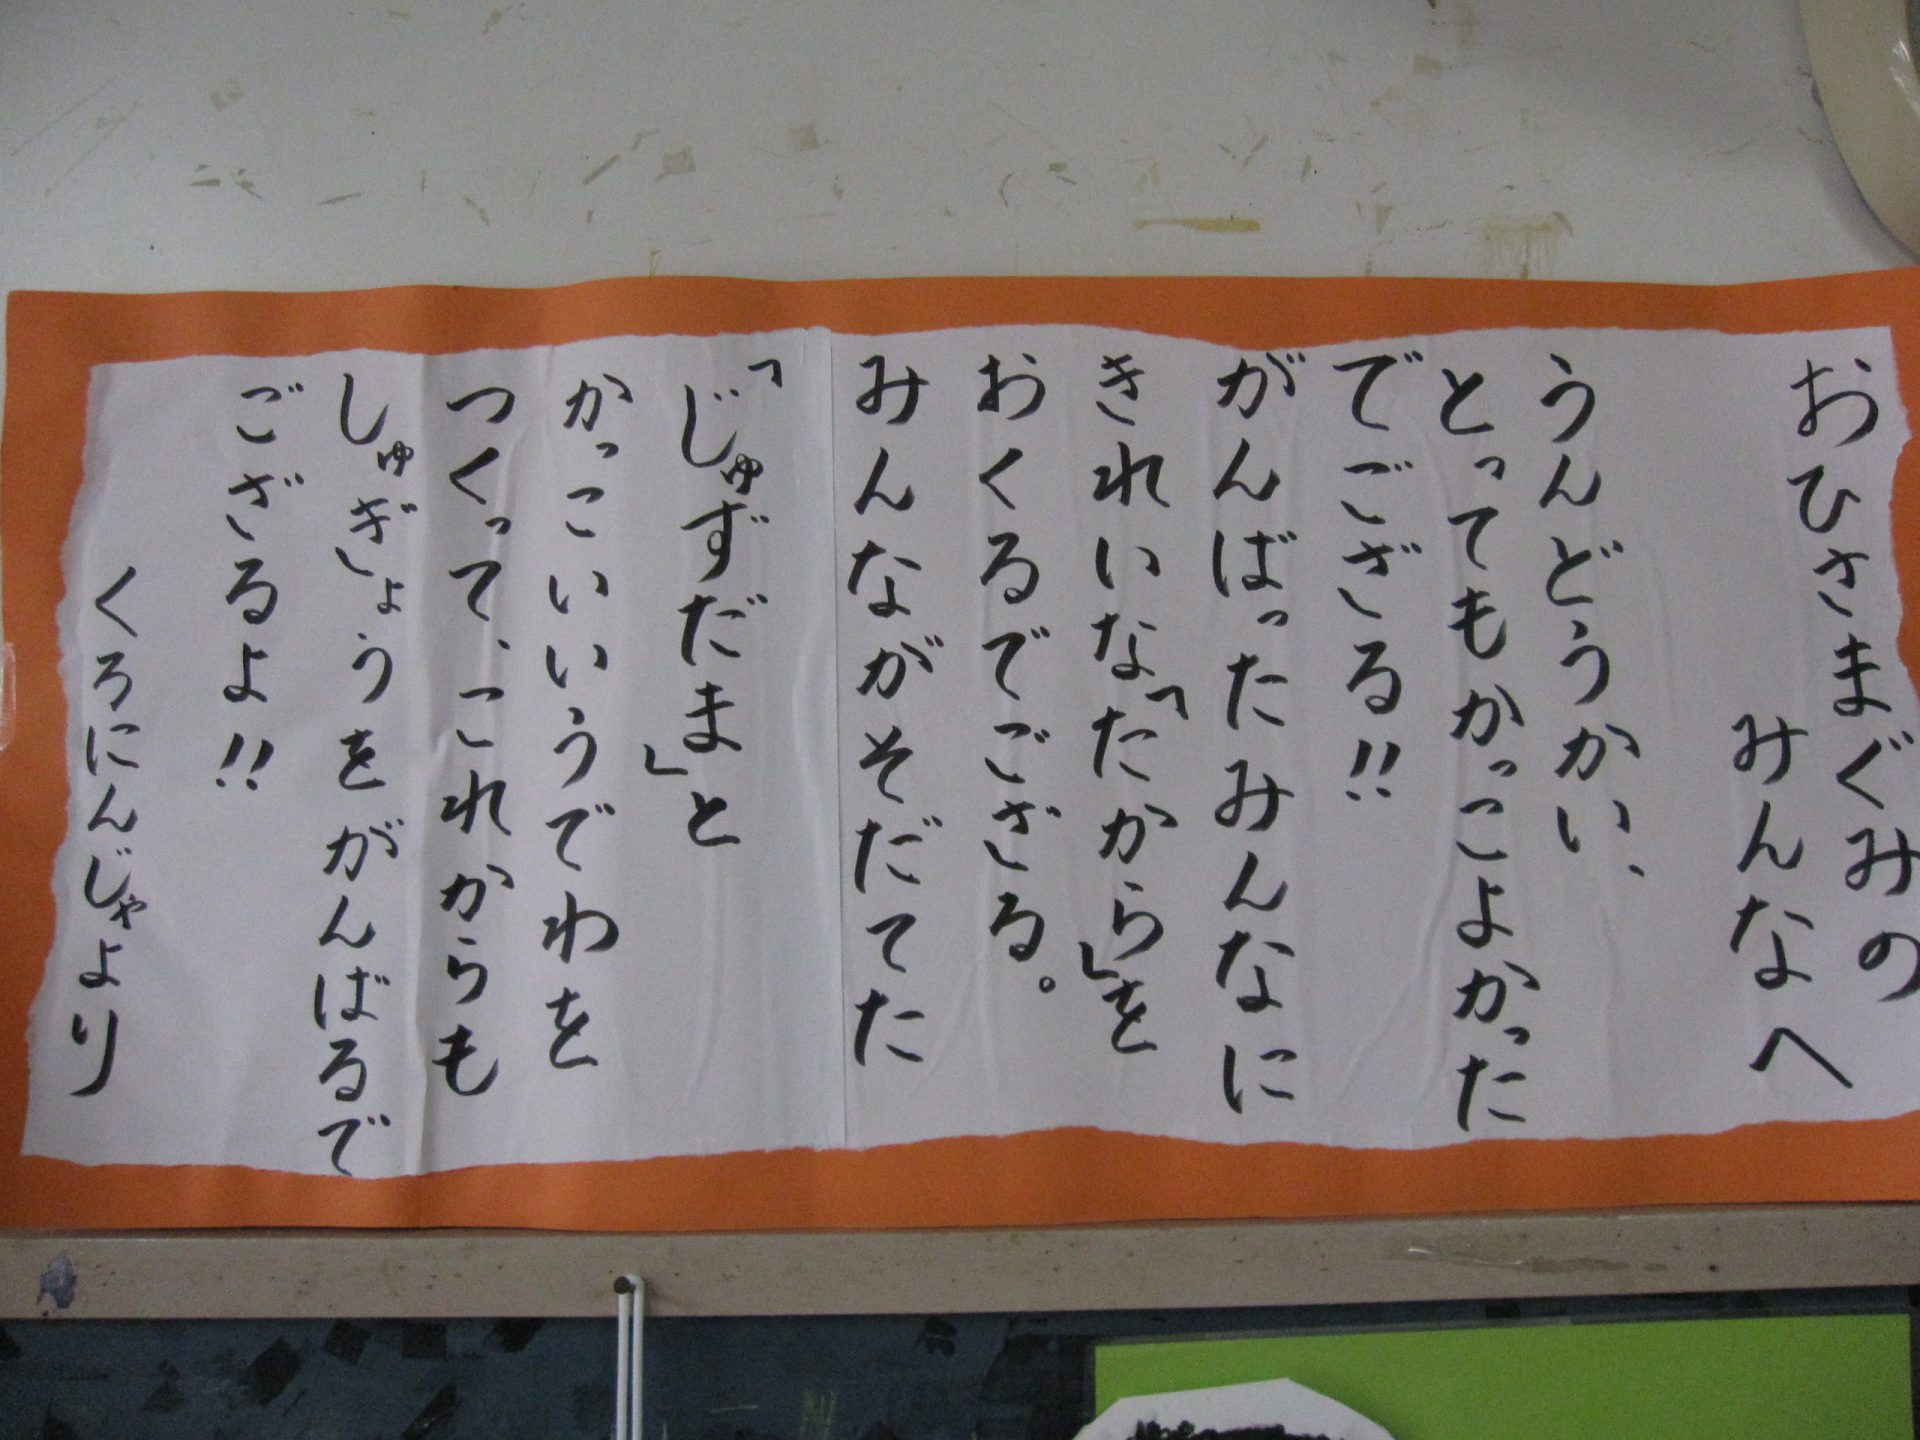 おひさまぐみの
みんなへ
うんどうかい、
とってもかっこよかった
でござる!!
がんばったみんなに
きれいな「たから」を
おくるでござる。
みんながそだてた
「じゅずだま」と
かっこいいうでわを
つくって、これからも
しゅぎょうをがんばるで
ござるよ!!
くろにんじゃより